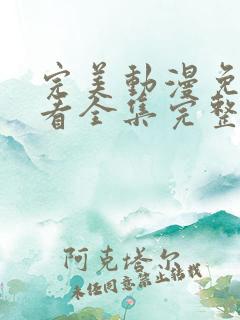 完美動漫免
看全集完整
阿克塔尔
未经同意禁止转载